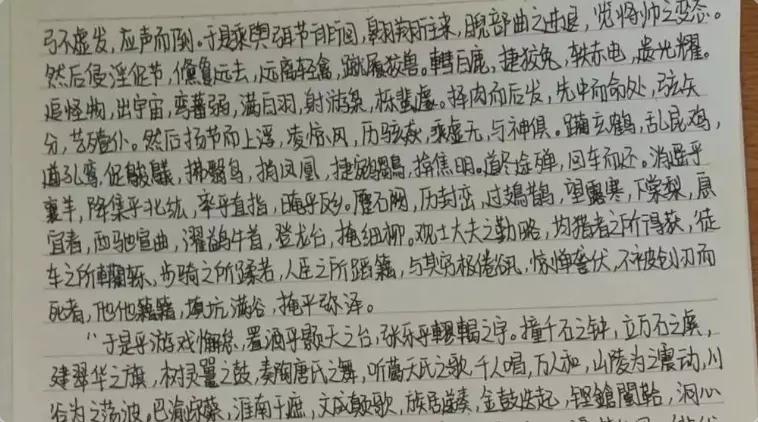 弓不虚发，应声而倒。于是乘舆弭节徘徊，翱翔往来，睨部曲之进退，览将帅之变态。
然后侵淫促节，儵夐远去，流离轻禽，蹴履狡兽。轊白鹿，捷狡兔，轶赤电，遗光耀。
追怪物，出宇宙，弯蕃弱，满白羽，射游枭，栎蜚虡。择肉而后发，先中而命处，弦矢
分，艺殪仆。然后扬节而上浮，凌惊风，历骇猋，乘虚无，与神俱。躏玄鹤，乱昆鸡，
遒孔鸾，促鵔鸃，拂翳鸟，捎凤凰，捷鹓鶵，揜焦明。道尽途殚，回车而还。消遥乎
襄羊，降集乎北纮，率乎直指，晻乎反乡。蹷石阙，历封峦，过鳷鹊，望露寒，下棠梨，息
宜春，西驰宣曲，濯鹢牛首，登龙台，掩细柳。观士大夫之勤略，均猎者之所得获，徒
车之所轥轹，步骑之所蹂若，人臣之所蹈籍，与其穷极倦谻，惊惮詟伏，不被创刃而
死者，他他籍籍，填坑满谷，掩平弥泽。
“于是乎游戏懈怠，置酒乎颢天之台，张乐乎轇輵之宇。撞千石之钟，立万石之虡，
建翠华之旗，树灵鼍之鼓，奏陶唐氏之舞，听葛天氏之歌，千人唱，万人和，山陵为之震动，川
谷为之荡波。巴渝宋蔡，淮南干遮，文成颠歌，族居递奏，金鼓迭起，铿鎗闛鞈，洞心